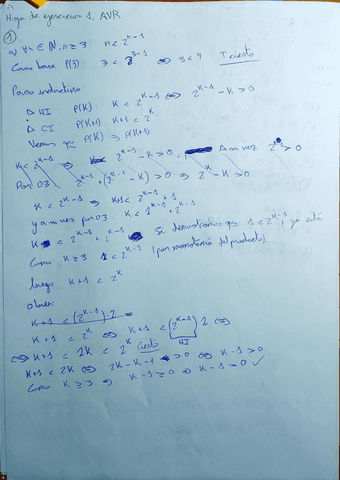 Hoja de ejercicios 1. AVR
①
a) ∀n ∈ ℕ, n ≥ 3: n < 2^{n-1}
Caso base P(3): 3 < 2^{3-1} ⇔ 3 < 4 Cierto
Paso inductivo
▷ HI: P(K): K < 2^{K-1} ⇔ 2^{K-1} - K > 0
▷ CI: P(K+1) K+1 < 2^K
Veamos que P(K) ⇒ P(K+1)
K < 2^{K-1} ⇒ 2^{K-1} - K > 0, A su vez 2^K > 0
Por O3. 2^{K-1} + (2^{K-1} - K) > 0 ⇒ 2^K - K > 0
K < 2^{K-1} ⇒ K+1 < 2^{K-1} + 1
y a su vez por O3. K < 2^{K-1} + 2^{K-1}
K < 2^{K-1} + 2^{K-1} Si demostramos que 1 < 2^{K-1}, ya está
Como K ≥ 3 1 < 2^{K-1} (por monotonía del producto)
luego K+1 < 2^K
O bien:
K+1 < (2^{K-1})·2 =
K+1 < 2^K ⇔ K+1 < (2^{K-1}) 2 ⇔
HI
⇔ K+1 = 2K < 2^K Cierto
K+1 < 2K ⇔ 2K - K - 1 > 0 ⇔ K-1 > 0
Como K ≥ 3 ⇒ K-1 ≥ 0 ⇒ K-1 > 0 ✓